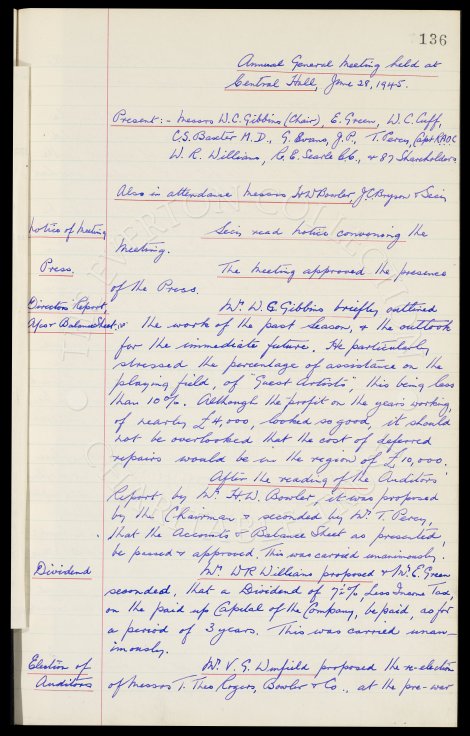 136
Annual General Meeting held at
Central Hall, June 28, 1945.
Present:- Messrs W.C. Gibbins (Chair), E. Green, W.C. Cuff,
C.S. Baxter M.D., G. Evans, J.P., T. Percy, Capt R.A.O.C
W.R. Williams, R.E. Searle Esq., & 87 Shareholders
Also in attendance Messrs H.W Bowler, J.C. Bryson & Secy
Notice of Meeting Secy read notice convening the
Meeting.
Press. The Meeting approved the presence
of the Press.
Directors Report, Mr. W.C. Gibbins briefly outlined
A/cs or Balance Sheet. the work of the past Season, & the outlook
for the immediate future. He particularly
stressed the percentage of assistance on the
playing field, of "Guest Artists", this being less
than 10%. Although the profit on the years working,
of nearly £4,000, looked so good, it should
not be overlooked that the cost of deferred
repairs would be in the region of £10,000.
After the reading of the Auditors
Report, by Mr. H.W. Bowler, it was proposed
by the Chairman & seconded by Mr. T. Percy,
that the Accounts & Balance Sheet as presented,
be passed & approved. This was carried unanimously.
Dividend Mr. W R Williams proposed & Mr. E. Green
seconded, that a Dividend of 7½%, Less Income Tax,
on the paid up Capital of the Company, be paid, as for
a period of 3 years. This was carried unan-
imously.
Election of Mr. V.G. Wingfield proposed the re-election
Auditors of Messrs T. Theo Rogers, Bowler & Co., at the pre-war